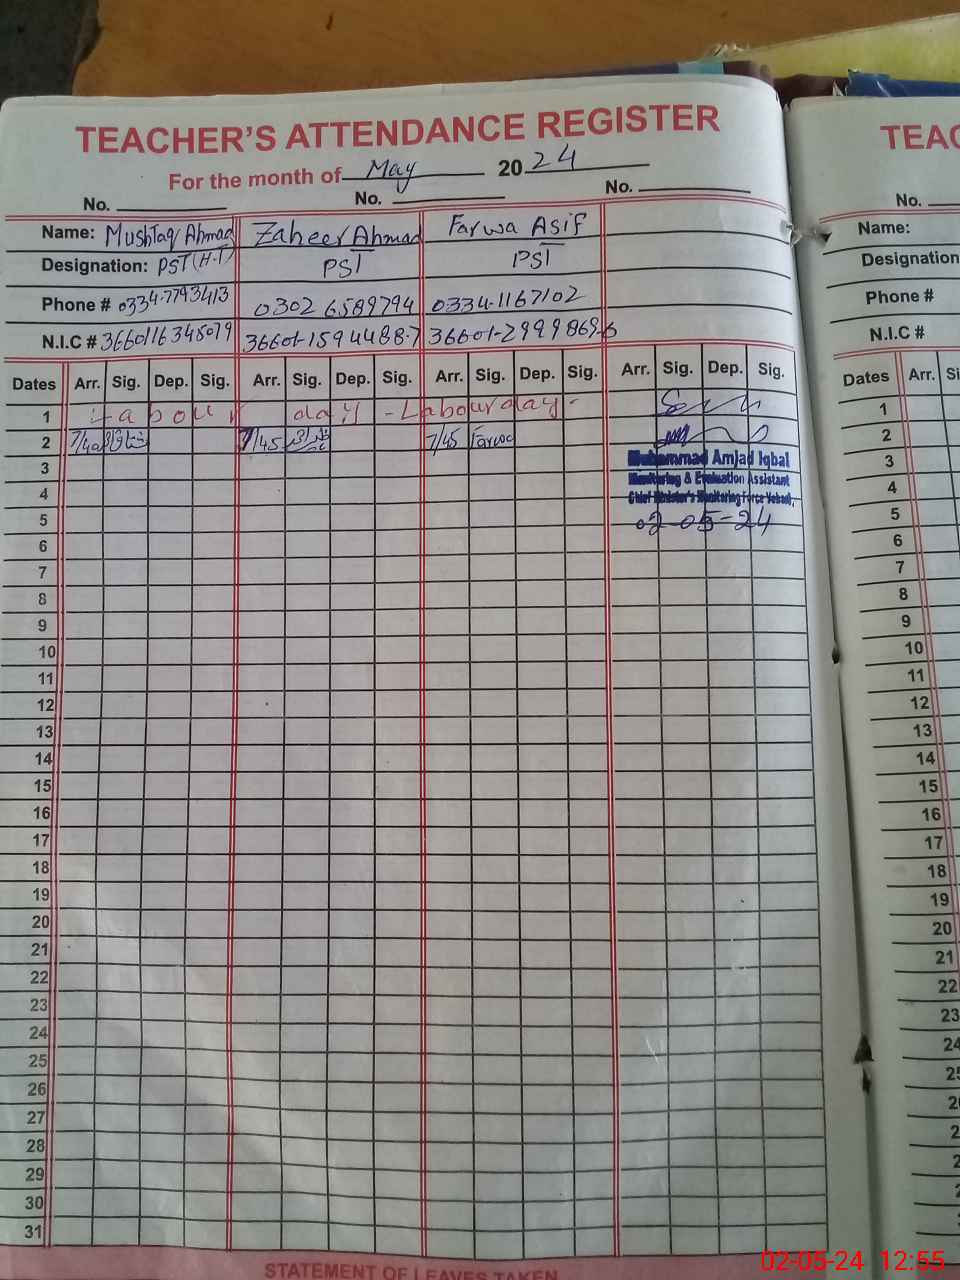 TEACHER'S ATTENDANCE REGISTER
For the month of May 2024
No. No. No.
Name: Mushtaq Ahmad Zaheer Ahmad Farwa Asif
Designation: PST (H.T) PST PST
Phone # 0334-7793413 0302 6589794 0334-1167102
N.I.C # 3660116345079 36601-1594488-7 36601-2999869-6
Dates Arr. Sig. Dep. Sig. Arr. Sig. Dep. Sig. Arr. Sig. Dep. Sig. Arr. Sig. Dep. Sig.
1 Labour day - Labour day -
2 7/40 مشتاق 7/45 7/45 Farwa
3 Muhammad Amjad Iqbal
Monitoring & Evaluation Assistant
4 Chief Minister's Monitoring Force Vehari.
5 02-05-24
6
7
8
9
10
11
12
13
14
15
16
17
18
19
20
21
22
23
24
25
26
27
28
29
30
31
STATEMENT OF LEAVES TAKEN
TEAC
No.
Name:
Designation
Phone #
N.I.C #
Dates Arr. Si
1
2
3
4
5
6
7
8
9
10
11
12
13
14
15
16
17
18
19
20
21
22
23
24
25
02-05-24 12:55